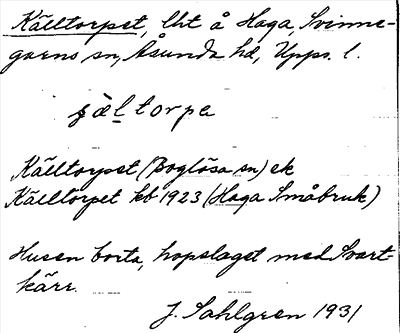 Källtorpet, lht å Haga, Svinne-
garns sn, Åsunda hd, Upps. l.
ɕæltorpe
Källtorpet (Boglösa sn) ek
Källtorpet kb 1923 (Haga Småbruk)
Husen borta, hopslaget med Svart-
kärr.
J. Sahlgren 1931